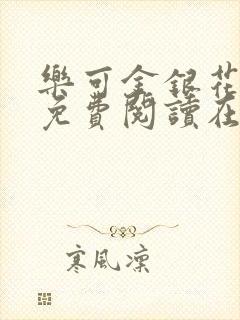 樂可金銀花
免費閱讀在
寒風凜